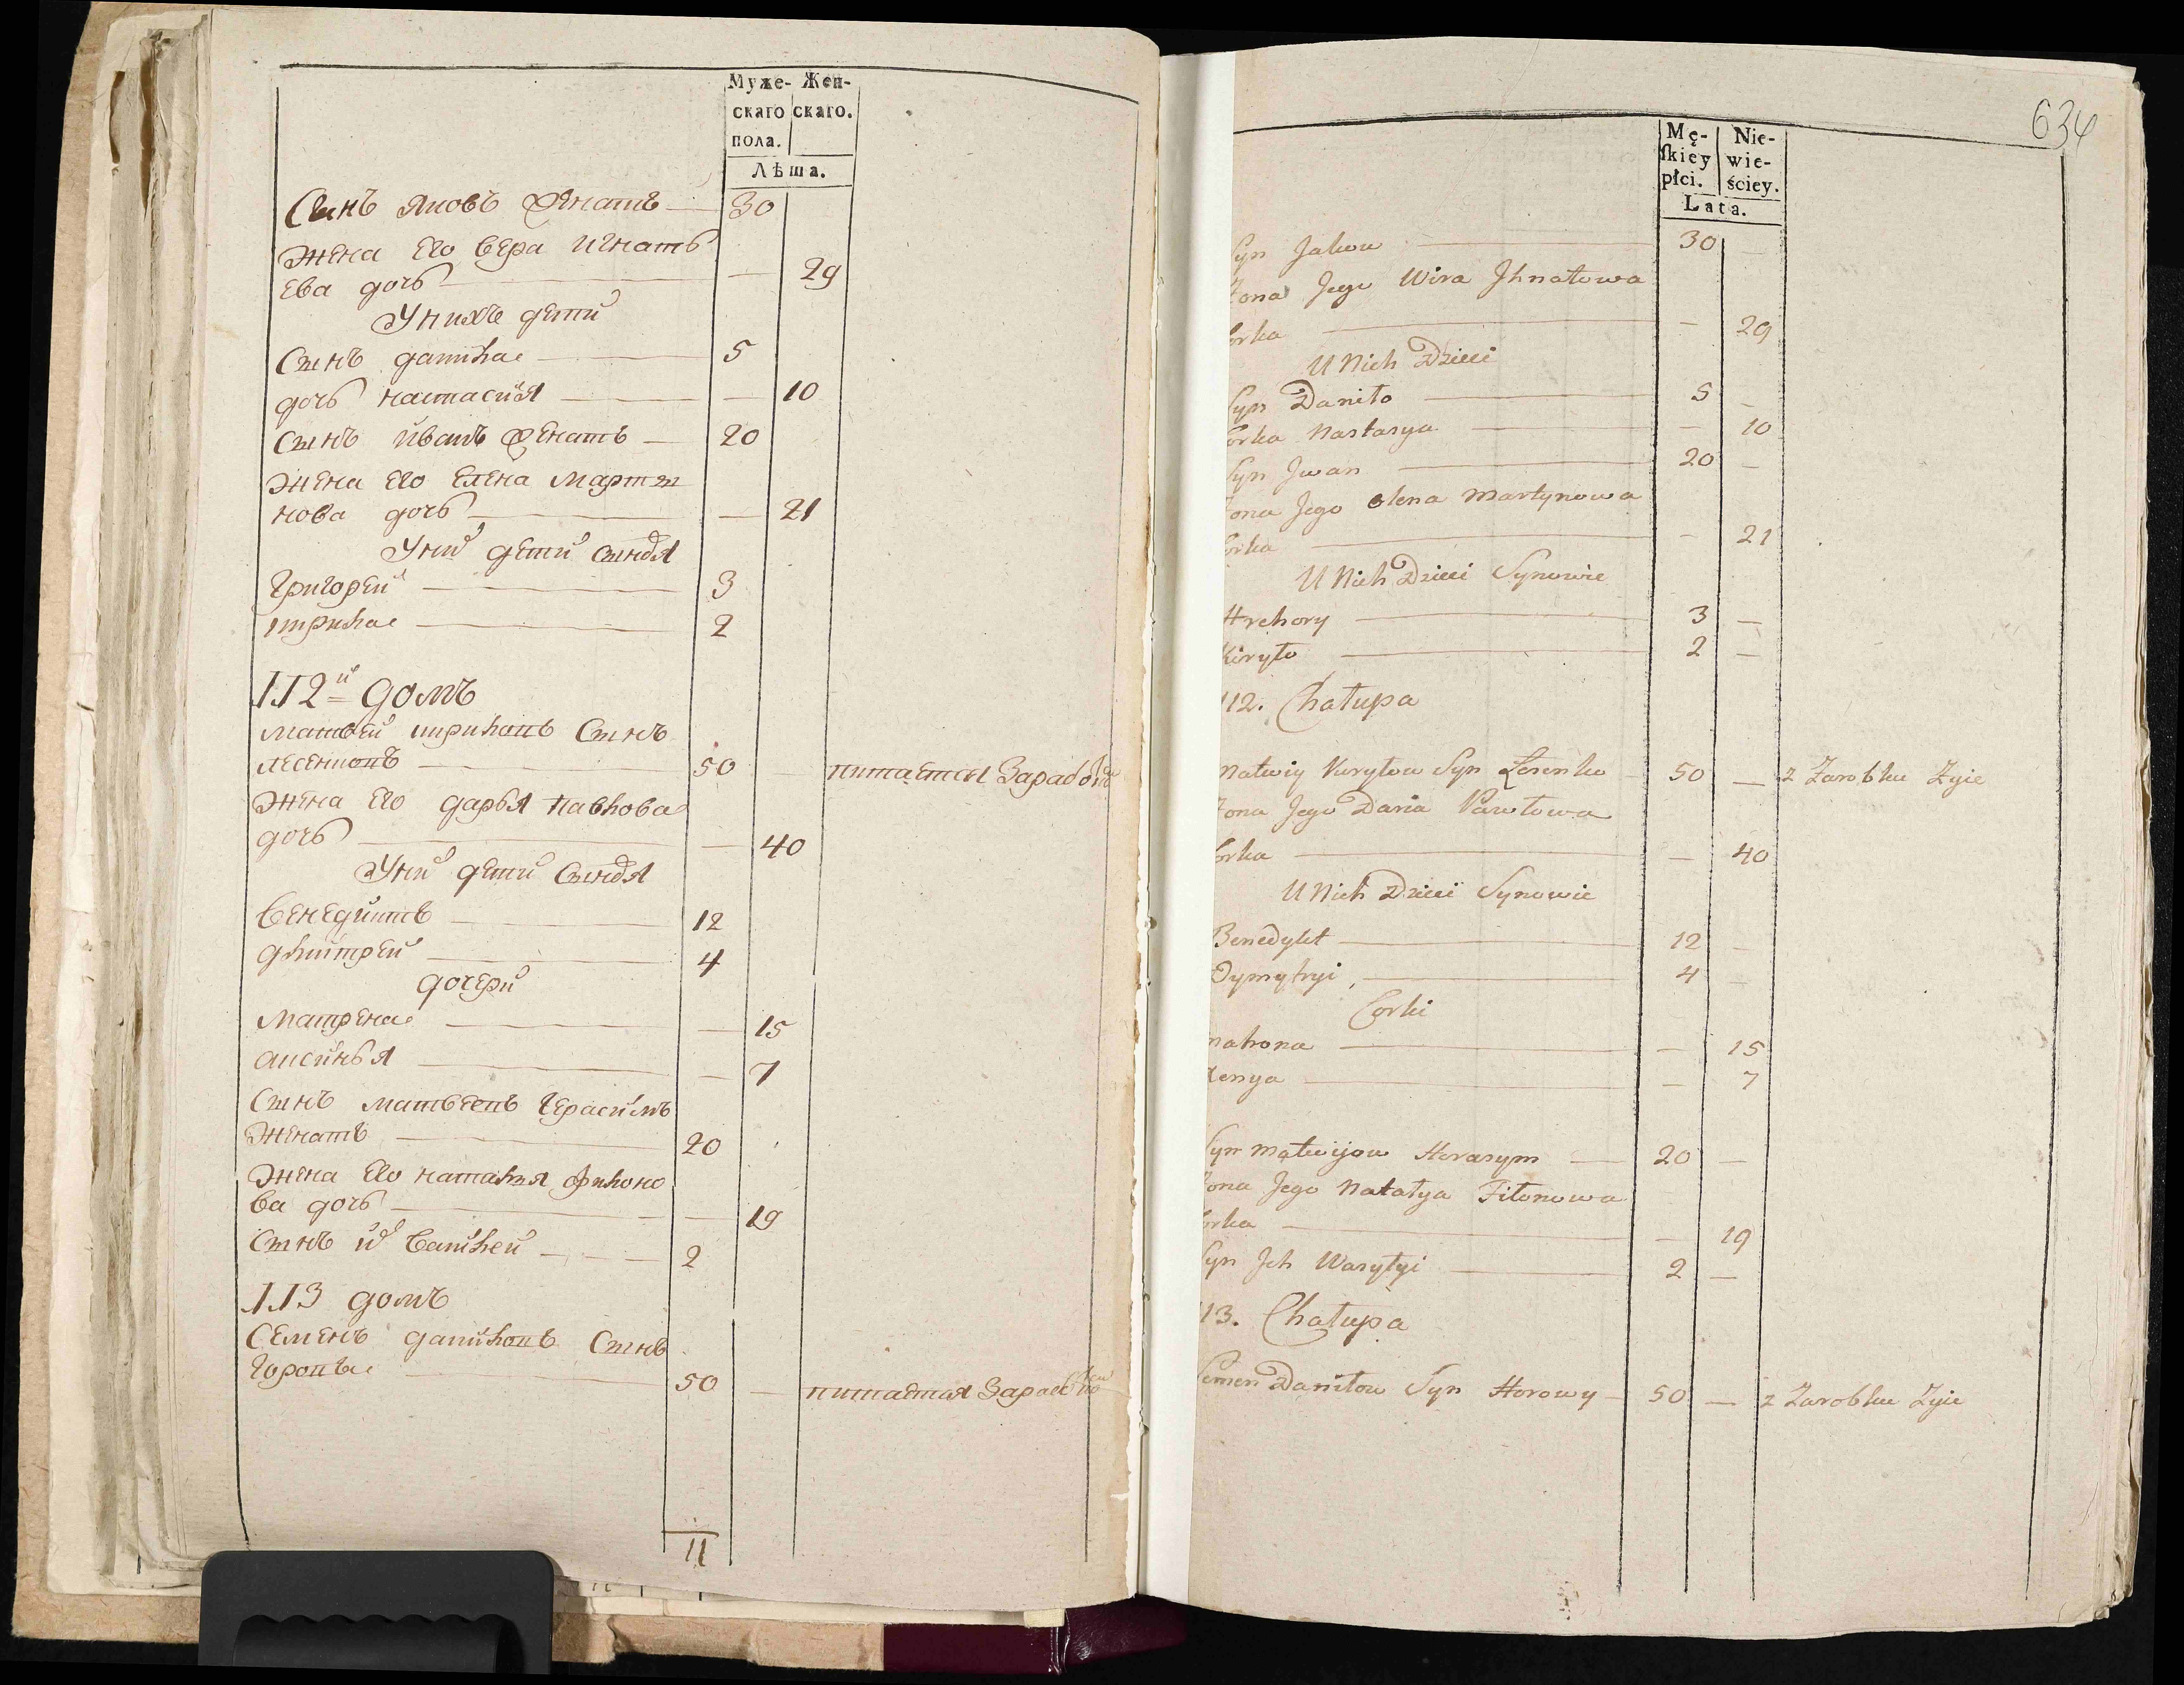 Муже- Жен-
скаго скаго.
пола.
Лѣта.
Сынъ яковъ женатъ 30
жена его вера игнать
ева дочь — 29
У нихъ дети
Сынъ данила 5
дочь настасия — 10
Сынъ иванъ женатъ 20
жена его елена марты
нова дочь — 21
У них дети сыновя
Григорей 3
кирила 2
112й домъ
матвей кириловъ Сынъ
лесенковъ 50 — питается Заработком
жена его дарья павлова
дочь — 40
У них дети сыновя
Венедиктъ 12
дмитрей 4
дочери
Матрена — 15
аксинья — 7
Сынъ матвеевъ Герасимъ
женатъ 20
жена его наталия филоно
ва дочь — 19
Сынъ их василей 2
113 домъ
Семенъ даниловъ Сынъ
50 — питается
11
634
Mę- Nie-
skiey wie-
płci. ściey.
Lata.
Syn Jakow 30 —
Zona Jego Wira Jhnatowa
Corka — 29
U Nich Dzieci
Syn Daniło 5 —
Corka Nastasya — 10
Syn Jwan 20 —
Zona Jego Olena Martynowa
Corka — 21
U Nich Dzieci Synowie
Hrehory 3 —
Kiryło 2 —
112. Chałupa
Matwiy Kuryłow Syn Lesenko 50 — z Zarobku Zyie
Zona Jego Daria Pawłowa
Corka — 40
U Nich Dzieci Synowie
Benedykt 12 —
Dymytryi 4 —
Corki
Matrona — 15
Xenya — 7
Syn Matwijow Herasym 20 —
Zona Jego Natalya Filonowa
Corka — 19
Syn Jch Wasylyi 2 —
113. Chałupa
Semen Daniłow Syn Horowy 50 — z Zarobku Zyie